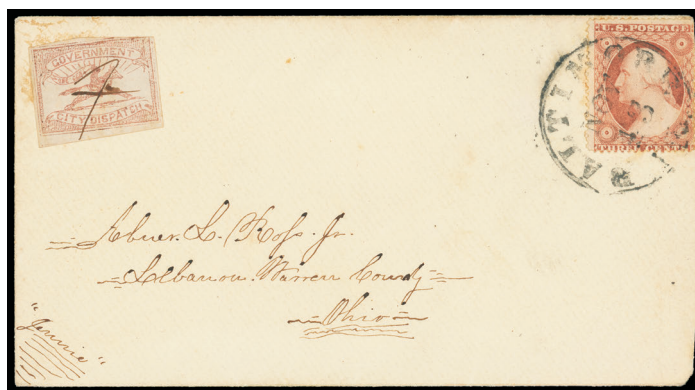 GOVERNMENT
CITY DISPATCH
U.S. POSTAGE
THREE CENTS
BALTIMORE
Abner. L. Ross. Jr.
Lebanon. Warren County
Ohio
"Jennie"